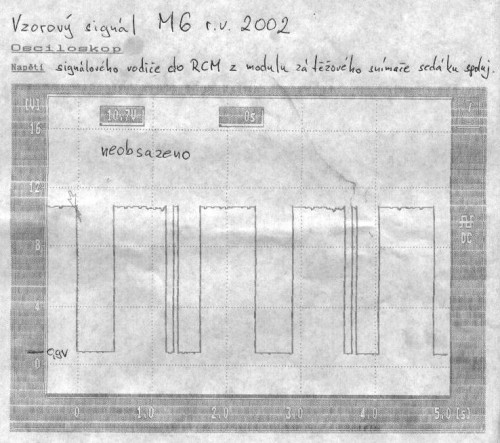 Vzorový signál M6 r.v. 2002
Osciloskop
Napětí signálového vodiče do RCM z modulu zátěžového snímače sedáku spoluj.
[V]
16
10.7V
0s
neobsazeno
12
8
4
0,9V
0
0
1.0
2.0
3.0
4.0
5.0 [s]